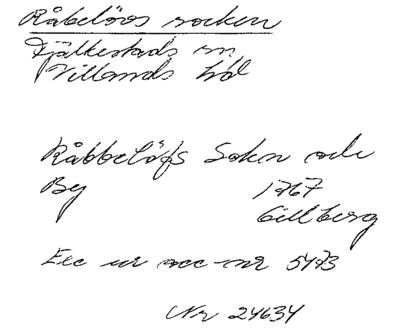 Råbelövs socken
Fjälkestads sn
Villands hd
Råbbelöfs Sokn och
By 1767
Gillberg
Exc ur acc-nr 5473
Nr 24634